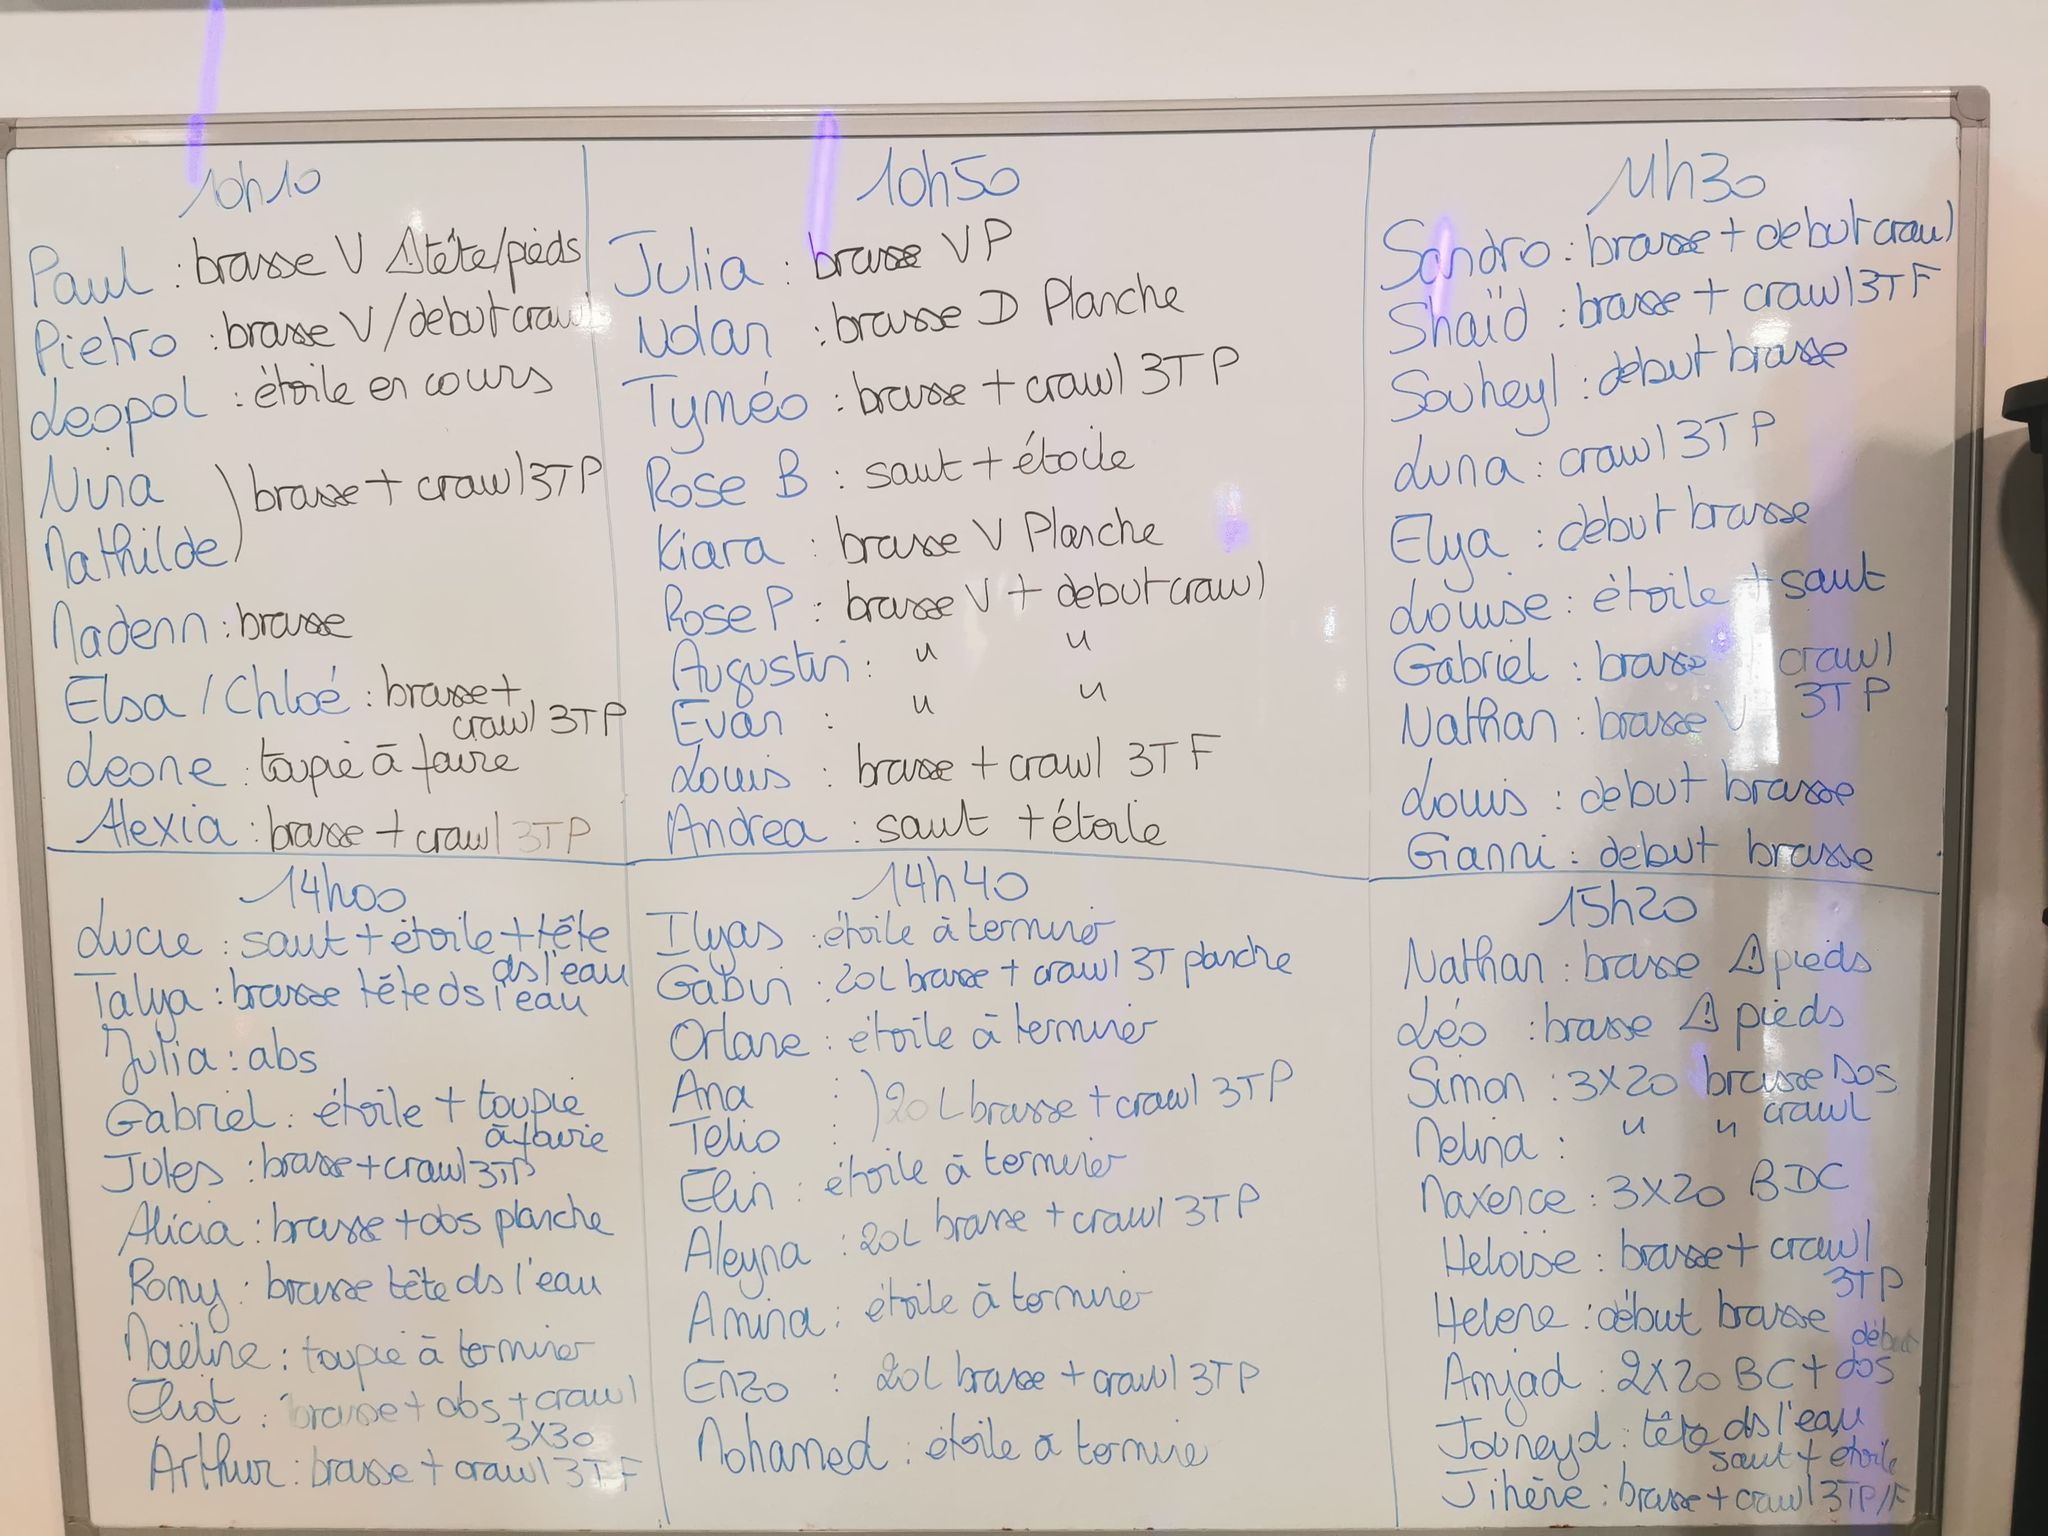 10h10
Paul : brasse V ⚠ tête/pieds
Pietro : brasse V/debut crawl
Leopol : étoile en cours
Nina
Mathilde ) brasse + crawl 3TP
Madenn : brasse
Elsa / Chloé : brasse +
crawl 3TP
Leone : toupie à faire
Alexia : brasse + crawl 3TP
10h50
Julia : brasse VP
Nolan : brasse D Planche
Tyméo : brasse + crawl 3TP
Rose B : saut + étoile
Kiara : brasse V Planche
Rose P : brasse V + debut crawl
Augustin : " "
Evan : " "
Louis : brasse + crawl 3TF
Andrea : saut + étoile
11h30
Sandro : brasse + debut crawl
Shaïd : brasse + crawl 3TF
Souheyl : debut brasse
Luna : crawl 3TP
Elya : debut brasse
Louise : étoile + saut
Gabriel : brasse crawl
3TP
Nathan : brasse V
Louis : debut brasse
Gianni : debut brasse
14h00
Lucie : saut + étoile + tête
ds l'eau
Talya : brasse tête ds l'eau
Julia : abs
Gabriel : étoile + toupie
à faire
Jules : brasse + crawl 3TP
Alicia : brasse + dos planche
Romy : brasse tête ds l'eau
Maëline : toupie à terminer
Eliot : brasse + dos + crawl
3X30
Arthur : brasse + crawl 3TF
14h40
Ilyas : étoile à terminer
Gabin : 20L brasse + crawl 3T planche
Orlane : étoile à terminer
Ana :
Telio : ) 20L brasse + crawl 3TP
Elin : étoile à terminer
Aleyna : 20L brasse + crawl 3TP
Amina : étoile à terminer
Enzo : 20L brasse + crawl 3TP
Mohamed : étoile à terminer
15h20
Nathan : brasse ⚠ pieds
Léo : brasse ⚠ pieds
Simon : 3X20 brasse Dos
crawl
Melina : " "
Maxence : 3X20 BDC
Heloïse : brasse + crawl
3TP
Helene : début brasse
début
Amjad : 2X20 BC + dos
Jouneyd : tête ds l'eau
saut + étoile
Jihène : brasse + crawl 3TP/F